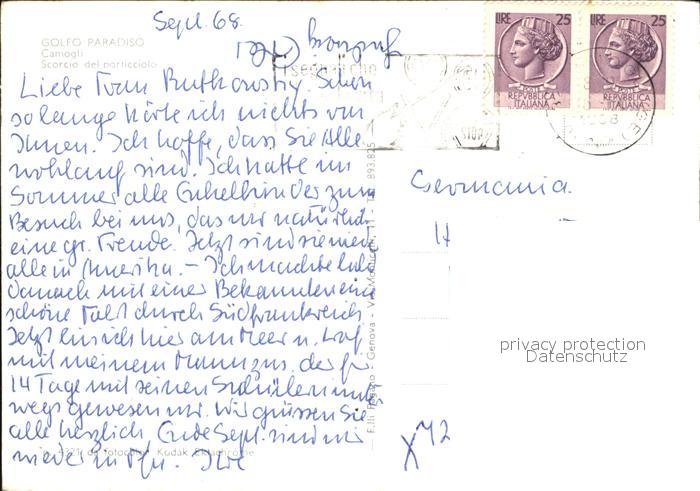 Sept. 68.
GOLFO PARADISO
Camogli
Scorcio del porticciolo
LIRE 25
REPVBBLICA
ITALIANA
LIRE 25
REPVBBLICA
ITALIANA
STOP
Liebe Frau Rutkowsky. Schon
so lange hörte ich nichts von
Ihnen. Ich hoffe, dass Sie Alle
wohlauf sind. Ich hatte im
Sommer alle Enkelkinder zum
Besuch bei uns, das war natürlich
eine gr. Freude. Jetzt sind sie wieder
alle in Amerika. – Ich machte
danach mit einer Bekannten eine
schöne Fahrt durch Südfrankreich
Jetzt bin ich hier am Meer u. traf
mit meinem Mann zus. der für
14 Tage mit seinen Schülern unter-
wegs gewesen war. Wir grüssen Sie
alle herzlich, Ende Sept. sind wir
wieder in Ihre
Germania.
privacy protection
Datenschutz
X 42
Genova
Kodak Ektachrome